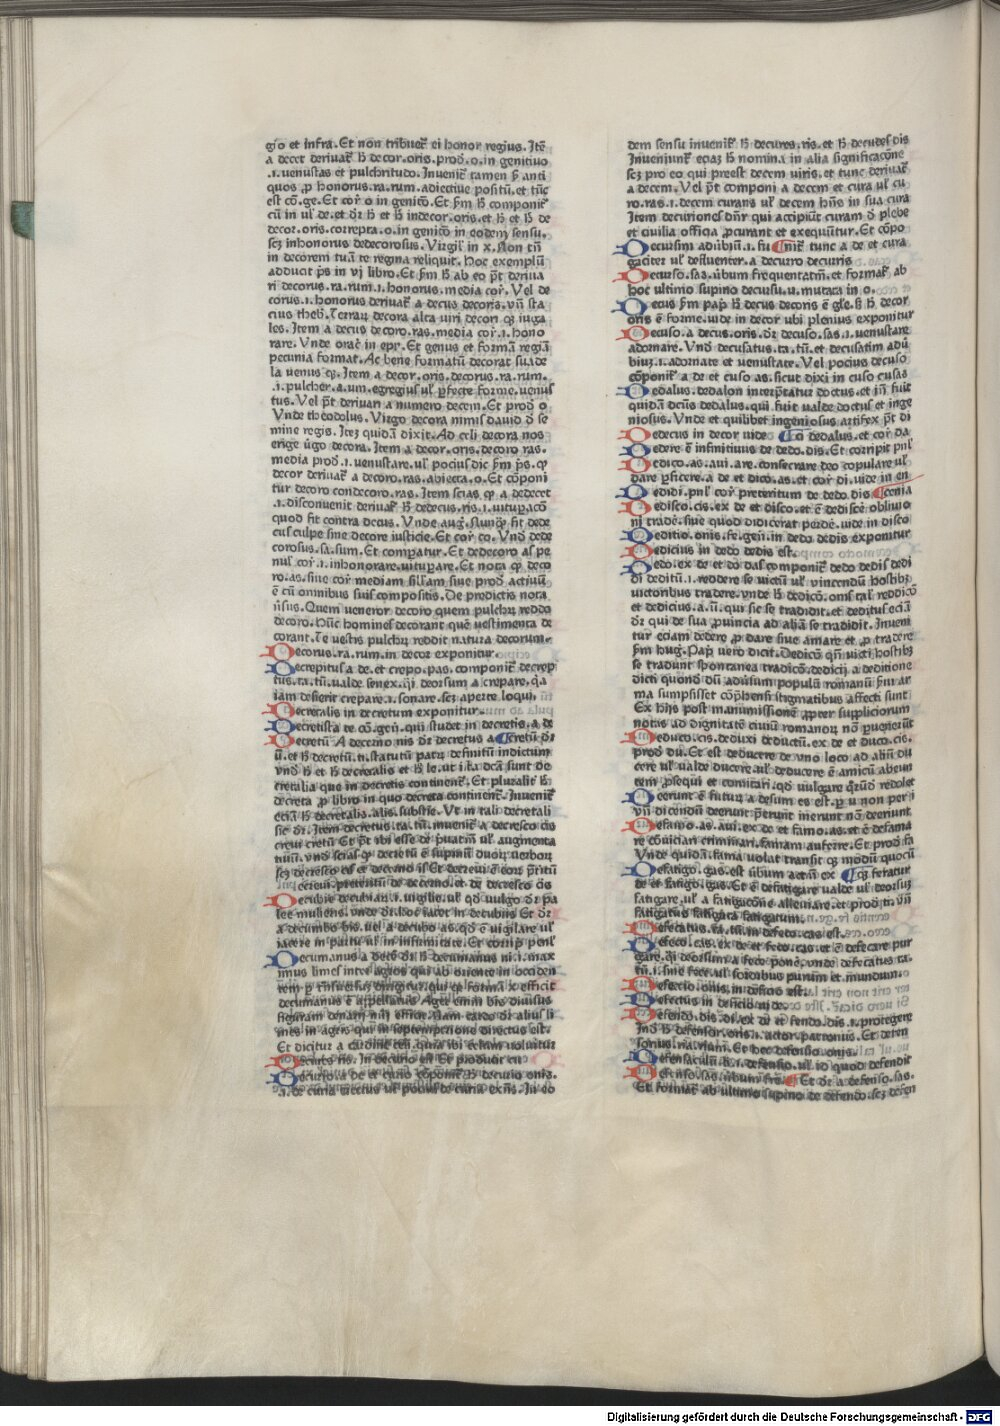 gio et infra. Et non tribuet᷑ ei honor regius. Itē
a decet deriuat᷑ ħ decor.oris. prod̄.o. in genitiuo
.i. venustas et pulchritudo. Inuenit᷑ tamen ẜm anti
quos ꝓ honorus.ra.rum. adiectiue positū. et tūc
est cō.ge. Et cor᷑ o in genit̄o. Et ẜm ħ componit᷑
cū in ul' de. et dr̄ ħ et ħ indecor.oris. et ħ et ħ de
decor.oris. correpta.o. in genit̄o in eodem sensu.
scz inhonorus dedecorosus. Virgil' in x. Non tn̄
in decorem tuā te regina reliquit. Hoc exemplū
adducit p̄s in vj libro. Et ẜm ħ ab eo pt̄ deriua
ri decorus.ra.rum.i. honorus. media cor᷑. Vel de
corus.i. honorus deriuat᷑ a decus decoris. vn̄ sta
cius theb. Terraꝝ decora alta viri decori qꝫ iuga
les. Item a decus decoro.ras. media cor᷑.i. hono
rare. Vnde orac̄ in epr̄. Et genus et formā regiā
pecunia format. Ac bene formatū decorat suade
la venus qꝫ. Item a decor.oris. decorus.ra.rum.
.i. pulcher.a.um. egregius ul' ꝑfecte forme. uenus
tus. Vel pt̄ deriuari a numero decem. Et prod̄ o
Vnde theodolus. Virgo decora nimis dauid d̄ se
mine regis. Itez quidā dixit. Ad celi decora nos
erige ūgo decora. Item a decor.oris. decoro ras.
media prod̄.i. venustare. ul' pocius dic ẜm p̄s. ꝙ
decor deriuat᷑ a decoro.ras. abiecta.o. Et cōponi
tur decoro condecoro.ras. Item scias ꝙ a dedecet
.i. disconuenit deriuat᷑ ħ dedecus.ris.i. vituꝑacō
quod fit contra decus. Vnde auḡ. Nunqꝫ fit dede
cus culpe sine decore iusticie. Et cor᷑ co. Vnd̄ dede
corosus.sa.sum. Et comꝑatur. Et dedecoro as pe
nul' cor᷑.i. inhonorare. vituꝑare. Et nota ꝙ deco
ro.as. siue cor᷑ mediam sill'am siue prod̄ actiuū
ē cū omnibus suis compositis. De predictis nota
ūsus. Quem ueneror decoro quem pulchꝝ reddo
decoro. Hūc homines decorant quē uestimenta de
corant. Te uestis pulchꝝ reddit natura decorum.
Decorus.ra.rum. in decor exponitur.
Decrepitus a de. et crepo.pas. componit᷑ decrep
tus.ta.tū. valde senex. q̄i deorsum a crepare. q̄a
iam desierit crepare.i. sonare. scz aperte loqui.
Decretalis in decretum exponitur.
Decretista te cō.gen̄. qui studet in decretis. a de
Decretū. A decerno nis dr̄ decretus a ¶cretū dr̄
ū. et ħ decretū.ti. statutū patꝝ definitū indictum
vnd̄ ħ et ħ decretalis et ħ le. vt ita dcā sunt de
cretalia que in decretis continent᷑. Et pluralit᷑ ħ
decreta ꝓ libro in quo decreta continent᷑. Inuenit᷑
eciā ħ decretalis.alis. substīe. Vt in tali decretali
sic dr̄. Item decretus.ta.tū. inuenit᷑ a decresco cis
creui cretū. Et pt̄ ibi esse de p̄uatiū ul' augmenta
tiuū. vnd̄ scias ꝙ decretū ē supinū duoꝝ uerboꝝ
scz decresco cis et decerno is Et decreui ē eoꝝ p̄ritū
Decreui. preteritum de decerno. et de decresco cis
Decubie decubiaꝝ.i. vigilie. ul' qd̄ vulgo dr̄ pa
lee muliens. vnde dr̄. hoc iacet in decubiis Et dr̄
a decumbo bis. uel a decubo as. qd̄ ē vigilare ul'
iacere in partu ul' in infirmitate. Et corrip̄ penl'
Decumanus a dec̄o dr̄ ħ decumanus ni.i. max
imus limes inter agros qui ab oriente in occiden
tem ꝑ transuersum dirigitur. qui ꝙ formā x efficit
decumanus ē appellatus. Ager enim bis diuisus
figuram denarij nūi efficit. Nam cardo dr̄ alius li
mes in agris qui in septemtrione directus est.
Et dicitur a cardine celi. quia ibi celum uoluitur
Decures ris. in decurio est. Et producit cu
Decurio. a de et curio cōponit᷑ ħ decurio onis.
.i. de curia eiectus ul' pocius de curia exn̄s. In eo
dem sensu inuenit᷑ ħ decures.ris. et ħ decudes dis
Inueniunt᷑ eciaz ħ nomina in alia significacōne
scz pro eo qui preest decem viris. et tunc deriuat᷑
a decem. Vel pt̄ componi a decem et cura ul' cu
ro.ras.i. decem curans ul' decem hn̄s in sua cura
Item decuriones dn̄r qui accipiūt curam d̄ plebe
et ciuilia officia ꝓcurant et exequūtur. Et cōpo
Decursim adūbiū.i. fu ¶nit᷑ tunc a de et cura
gaciter ul' defluenter. a decurro decuris
Decurso.sas. ūbum frequentatm̄. et format᷑ ab
hoc ultimo supino decursu.u. mutata in o.
Decus ẜm pap̄ ħ decus decoris ē gl'e. ẜ ħ decor
oris ē forme. uide in decor ubi plenius exponitur
Decuso. a decus.oris. dr̄ decuso.sas.i. venustare
adornare. Vnd̄ decusatus.ta.tū. et decusatim adū
biuꝫ.i. adornate et venustate. Vel pocius decuso
cōponit᷑ a de et cuso as. sicut dixi in cuso cusas
Dedalus. dedalon interp̄tatur doctus. et in̄ fuit
quidā dcūs dedalus. qui fuit valde doctus et inge
niosus. Vnde et quilibet ingeniosus artifex pt̄ di
Dedecus in decor uide ¶ci dedalus. et cor᷑ da
Dedere ē infinitiuus de dedo.dis. Et corripit pnl'
Dedico.as.aui.are. consecrare deo copulare ul'
dare ꝑficere. a de et dico.as. et cor᷑ di. uide in en
Dedidi. pnl' cor᷑ preteritum de dedo dis ¶cenia
Dedisco.cis. ex de et disco. et ē dediscē obliuio
ni tradē. siue quod didicerat perdē. uide in disco
Deditio.onis. fe.gen̄. in dedo dedis exponitur
Dedicius in dedo dedis est.
Dedo. ex de et do das componit᷑ dedo dedis dedi
di deditū.i. reddere se victū ul' vincendū hostibꝫ
victoribus tradere. vnde ħ dedicō.onis. tal' reddicō
et dedicius.a.ū. qui sic se tradidit. et deditus eciā
dr̄ qui de sua ꝓuincia ad aliā se tradidit. Inueni
tur eciam dedere ꝓ dare siue amare et ꝓ tradere
ẜm huḡ. Pap̄ uero dicit. Dedicō qn̄ victi hostibꝫ
se tradunt spontanea tradicō. dedicij a deditione
dicti quond dū adūsum populū romanū ẜm ar
ma sumpsisset cōp̄hensi stigmatibus affecti sunt
Ex hijs post manumissionē ꝓpter suppliciorum
notas ad dignitatē ciuiū romanoꝝ nō ꝑuenerūt
Deduco.cis. deduxi deductū. ex de et duco.cis.
prod̄ dū. Et est deducere de vno loco ad aliū du
cere ul' valde ducere. ul' deducere ē amicū abeun
tem ꝓsequi et comitari. qd̄ vulgare qr̄ud̄ redolet
Deerunt ē futuꝝ a desum es est. ꝓ u non per i
vn̄ dicendū deerunt p̄erunt inerunt nō deeriunt
Defamo.as.aui. ex de et famo.as. et ē defama
re cōuiciari criminari. famam auferre. Et prod̄ fa
Vnde quidā. fama volat transit qꝫ modū quociū
Defatigo.gas. est ūbum actiū ex ¶qꝫ feratur
de et fatigo.gas. Et ē defatigare valde ul' deorsuꝫ
fatigare. ul' a fatigacōne alleuiare. et prod̄ ti. vn̄
fatigatus fatigata fatigatum.
Defecatus.ta.tū. in defeco.cas est.
Defeco.cas. ex de et feco.cas. et ē defecare pur
gare. q̄i deorsum a fece ponē. vnde defecatus.ta.
tū.i. sine fece. ul' sordibus purum et mundum.
Defectio.onis. in deficio est.
Defectus in deficio uide.
Defendo.dis.di. ex de et fendo.dis.i. protegere
Ind̄ ħ defensor.oris.i. actor. patronus. Et defen
sorius.ria.rium. Et hec defensio.onis.
Defensaculū.li.i. defensio. ul' id quod defendit
Defenso.sas. ūbum freq̄. ¶Et dr̄ a defenso.sas.
Et format᷑ ab ultimo supino de defendo. scz defen
Digitalisierung gefördert durch die Deutsche Forschungsgemeinschaft - DFG